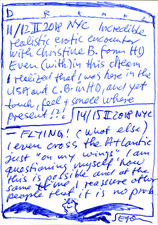 D R E A M
11/12 II 2018 NYC Incredible
realistic erotic encounter
with Christine B. (from H)
Even (with) in this dream
I realized that I was here in the
USA and C.B. in HD, and yet
touch, feel & smell where
present!?! 14/15 II 2018 NYC
— FLYING! (what else)
I even cross the Atlantic
just "on my wings". I am
questioning myself how
this is possible and at the
same time I reassure other
people that it is no prob